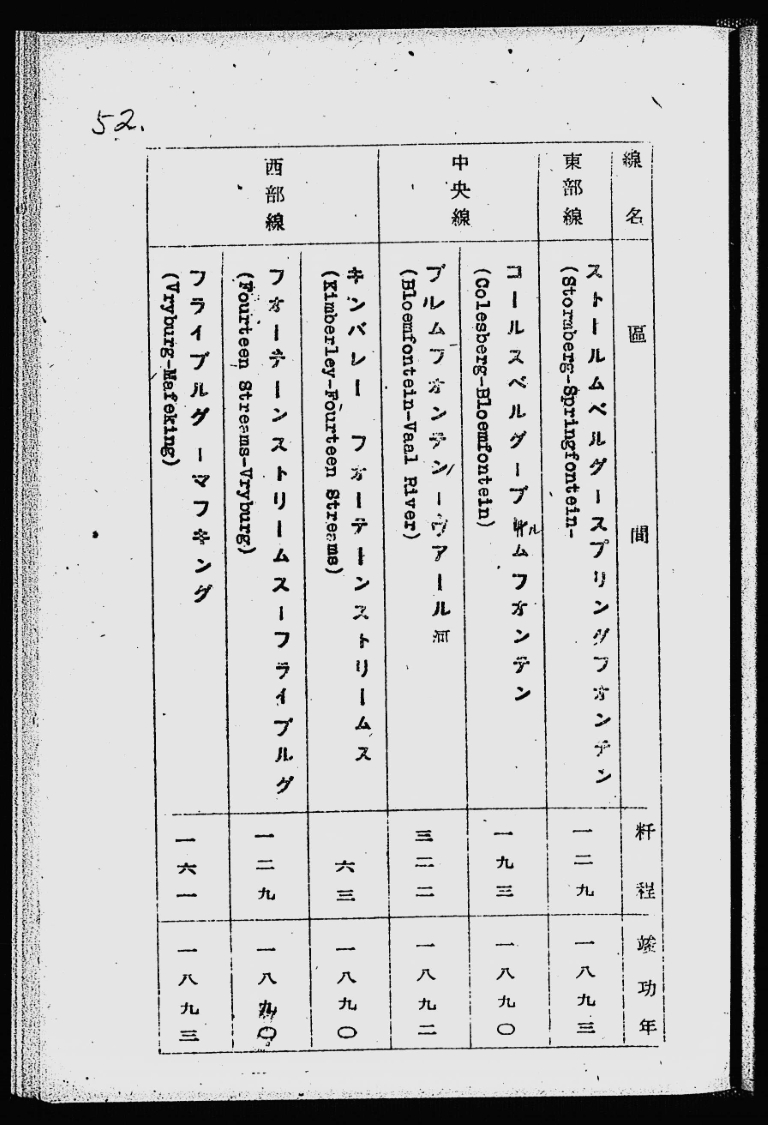 52.
線名
區間
粁程
竣功年
東部線
ストールムベルグースプリングフオンテン
(Stormberg-Springfontein-
一二九
一八九三
中央線
コールスベルグーブルムフオンテン
(Colesberg-Bloemfontein)
一九三
一八九〇
ブルムフオンテンーヴアール河
(Bloemfontein-Vaal River)
三二二
一八九二
西部線
キンバレー フオーテーンストリームス
(Kimberley-Fourteen Streams)
六三
一八九〇
フオーテーンストリームスーフライブルグ
(Fourteen Streams-Vryburg)
一二九
一八九〇
フライブルグーマフキング
(Vryburg-Mafeking)
一六一
一八九三